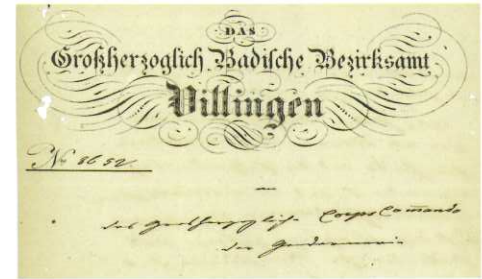 DAS
Großherzoglich Badische Bezirksamt
Villingen
No 8652.
an
das Großherzogliche Corps Comando
der Gendarmerie